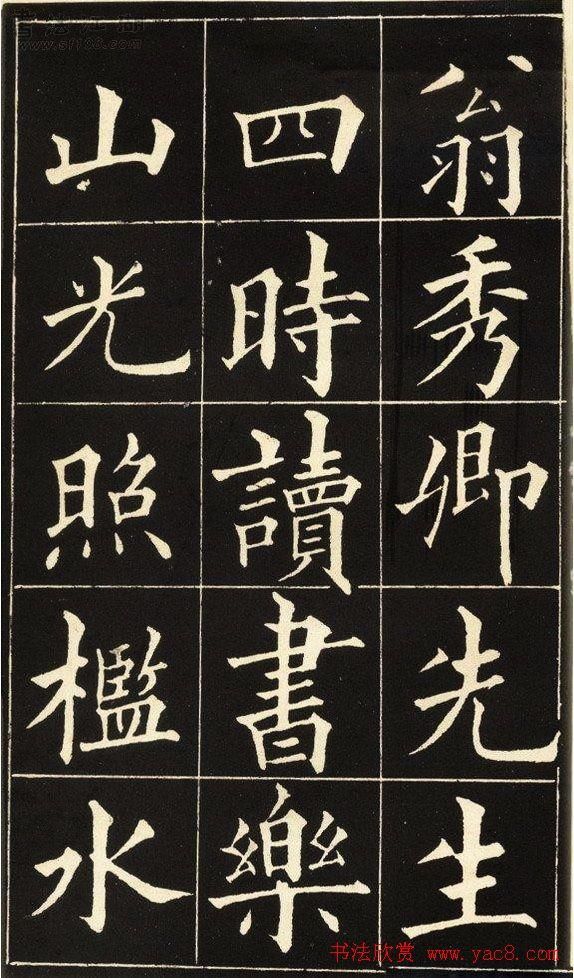 翁秀卿先生
四時讀書樂
山光照檻水
www.sf108.com
书法欣赏 www.yac8.com